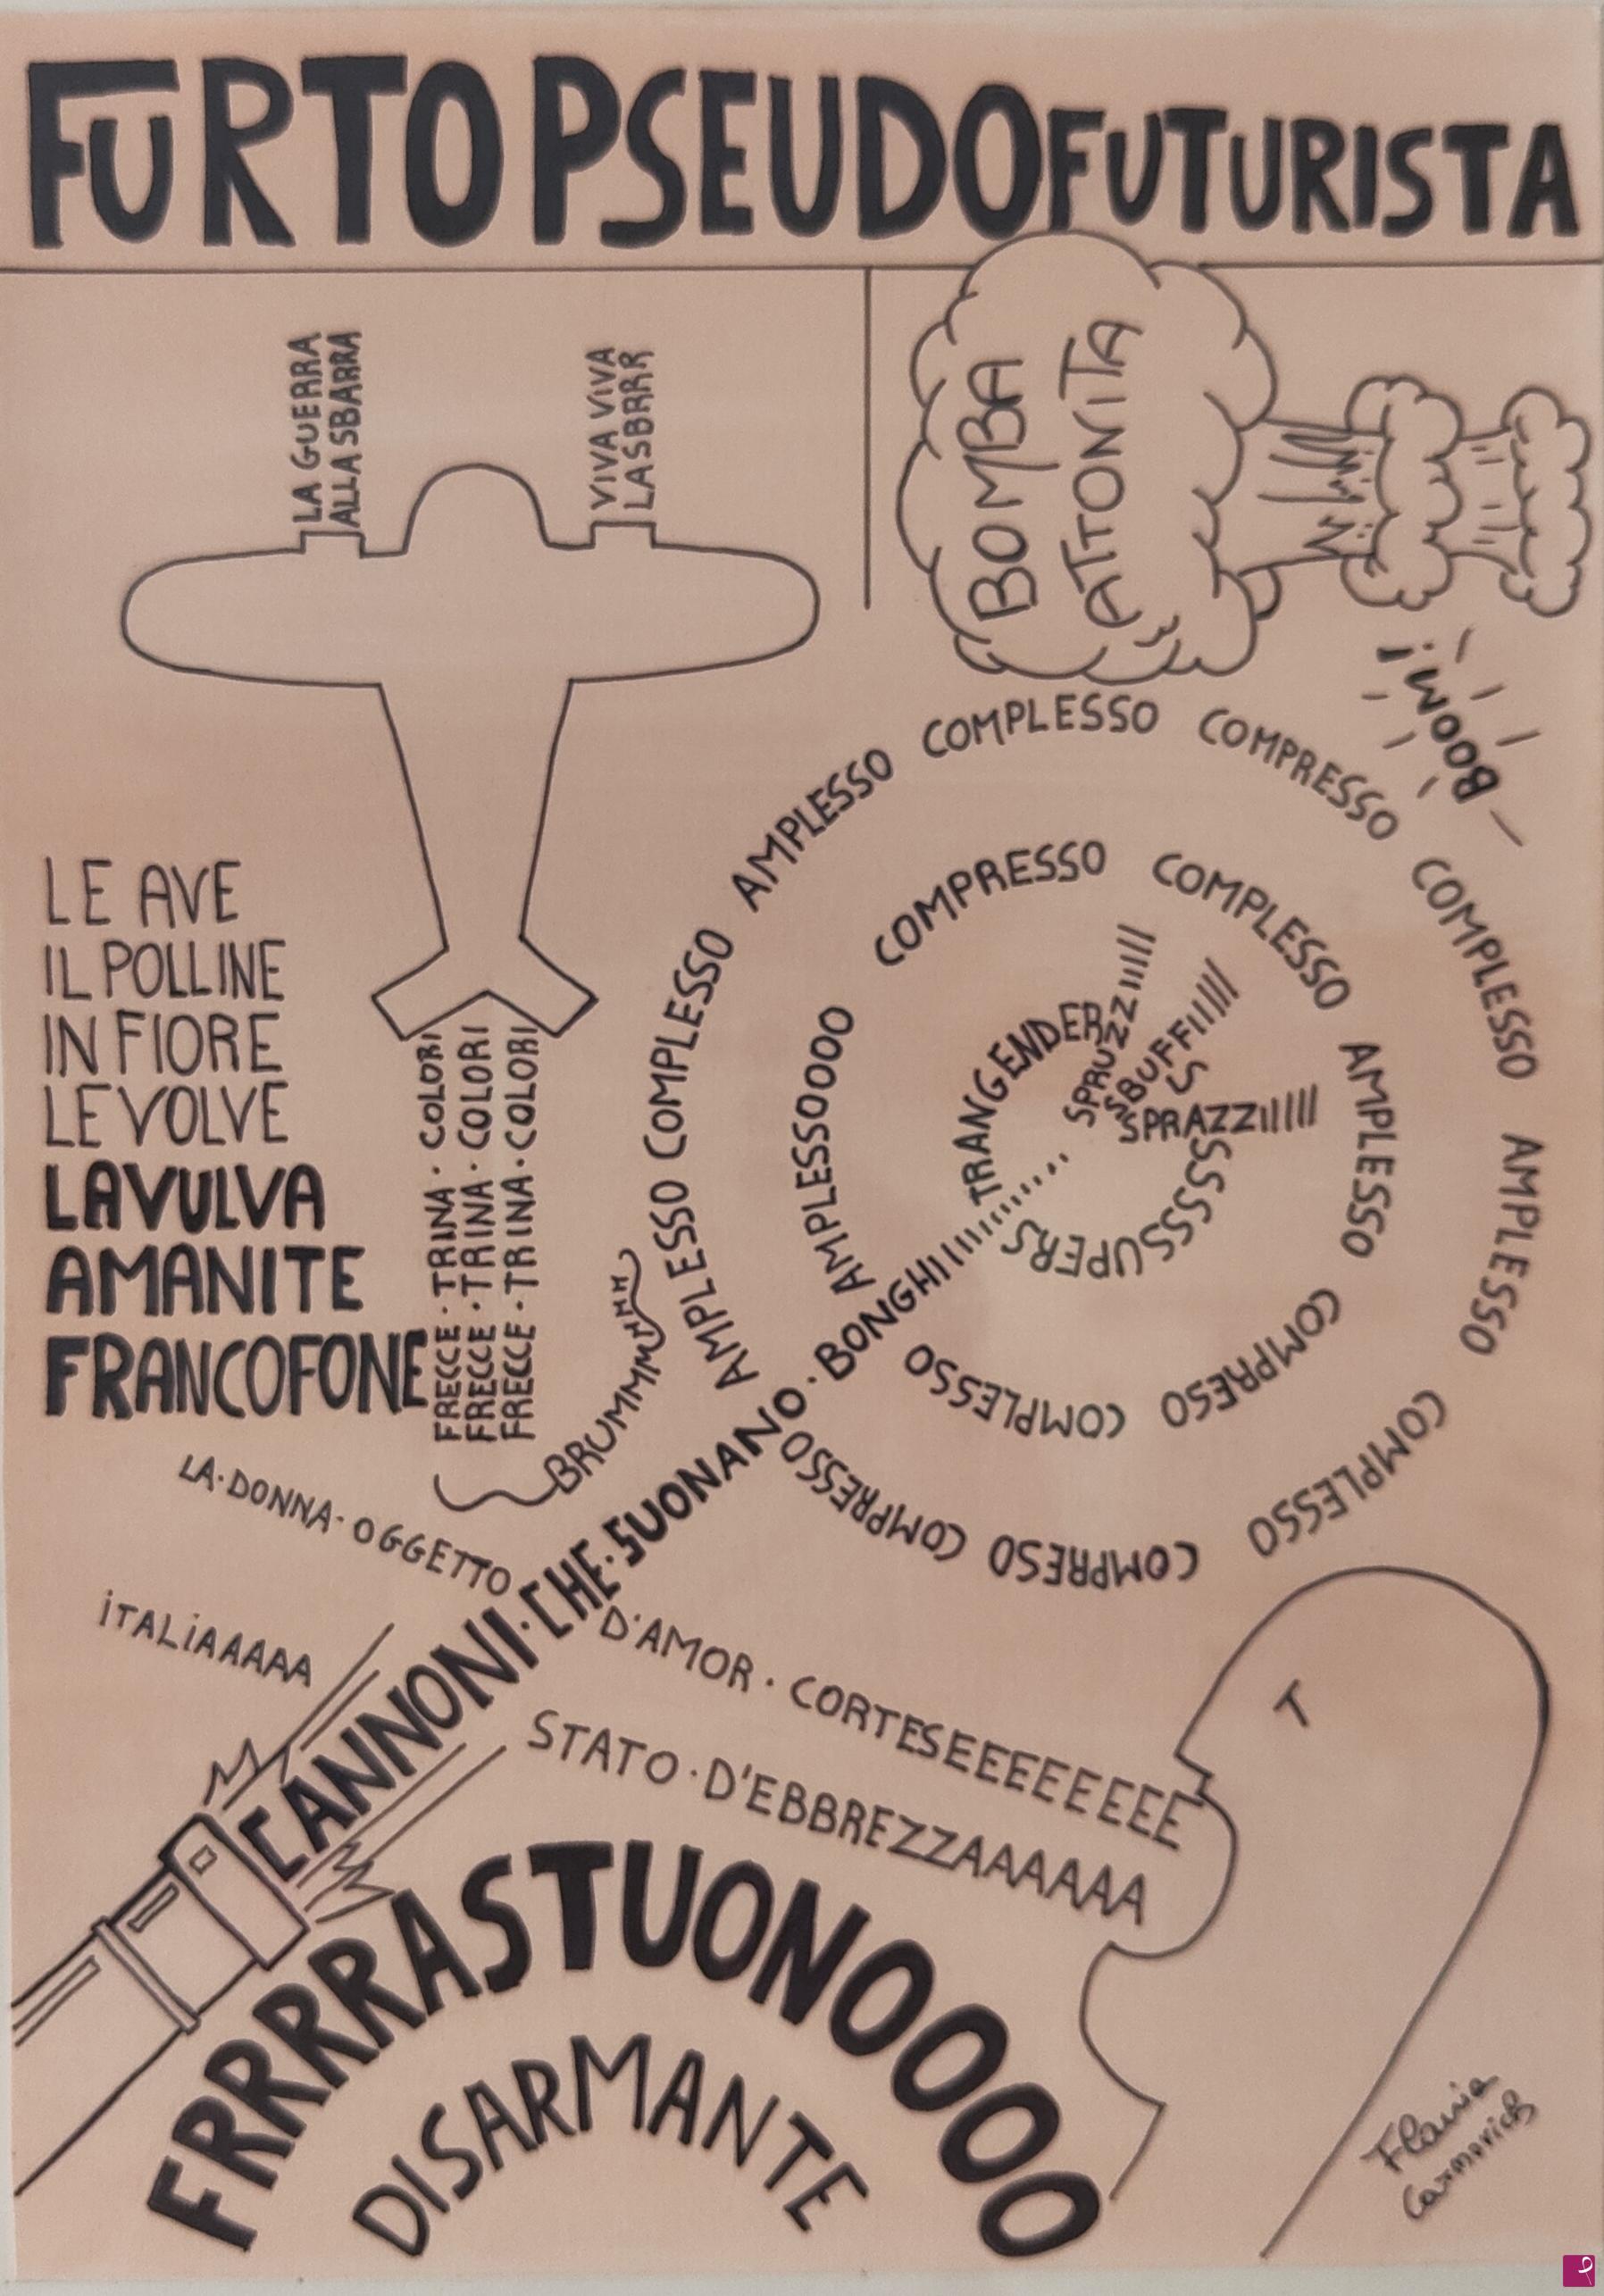 FURTO PSEUDOFUTURISTA
LA GUERRA
ALLA SBARRA
VIVA VIVA
LA SBRRR
BOMBA
ATTONITA
BOOM!
LE AVE
IL POLLINE
IN FIORE
LE VOLVE
LA VULVA
AMANITE
FRANCOFONE
FRECCE · TRINA · COLORI
FRECCE · TRINA · COLORI
FRECCE · TRINA · COLORI
BRUMMMMHHH
AMPLESSO COMPLESSO AMPLESSO COMPLESSO COMPRESSO COMPLESSO AMPLESSO COMPLESSO COMPRESO COMPRESSO
AMPLESSOOOO COMPRESSO COMPLESSO AMPLESSO COMPRESO COMPLESSO
TRANGENDER
SPRUZZIIIIII
SBUFFIIIIII
SPRAZZIIIIII
SSSSSSUPERS
CANNONI · CHE · SUONANO · BONGHIIIIIIIIII......
LA · DONNA · OGGETTO
D'AMOR · CORTESEEEEEEEEE
ITALIAAAAA
STATO · D'EBBREZZAAAAAA
FRRRRASTUONOOOO
DISARMANTE
Flavia
Carmovich